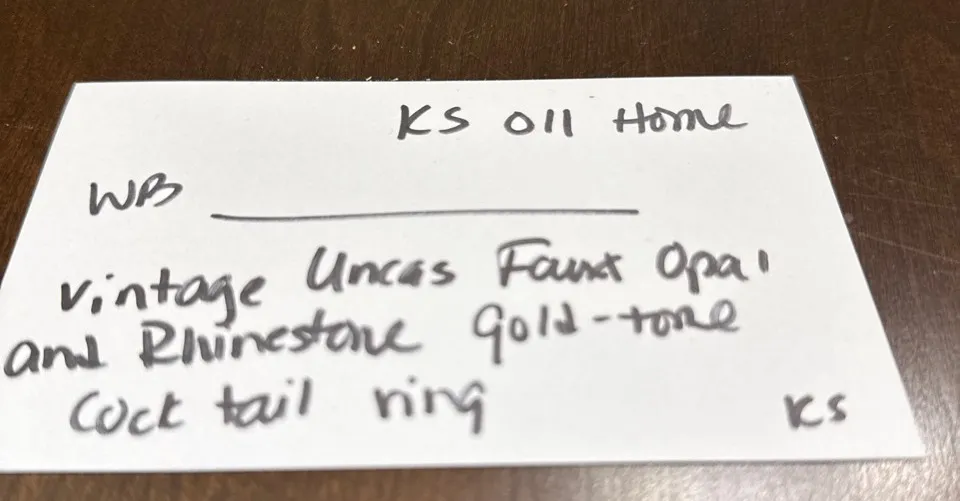 KS 011 Home
WB
Vintage Uncas Faux Opal
and Rhinestone gold-tone
Cocktail ring
KS